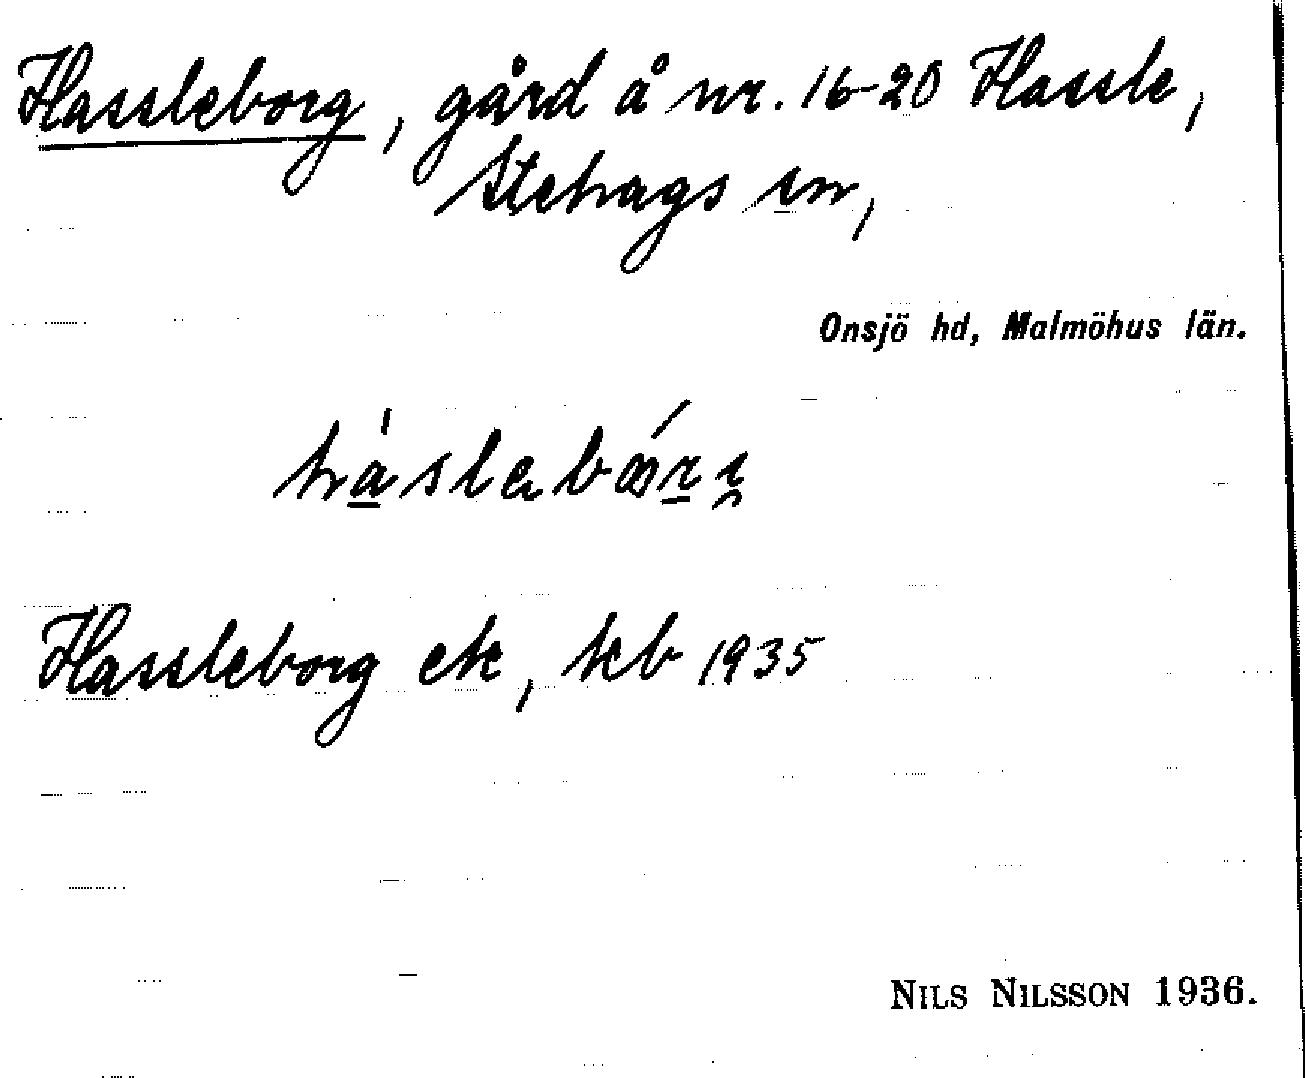 Hassleborg, gård å nr. 16-20 Hassle,
Stehags sn,
Onsjö hd, Malmöhus län.
Hassleborg ek, kb 1935
NILS NILSSON 1936.